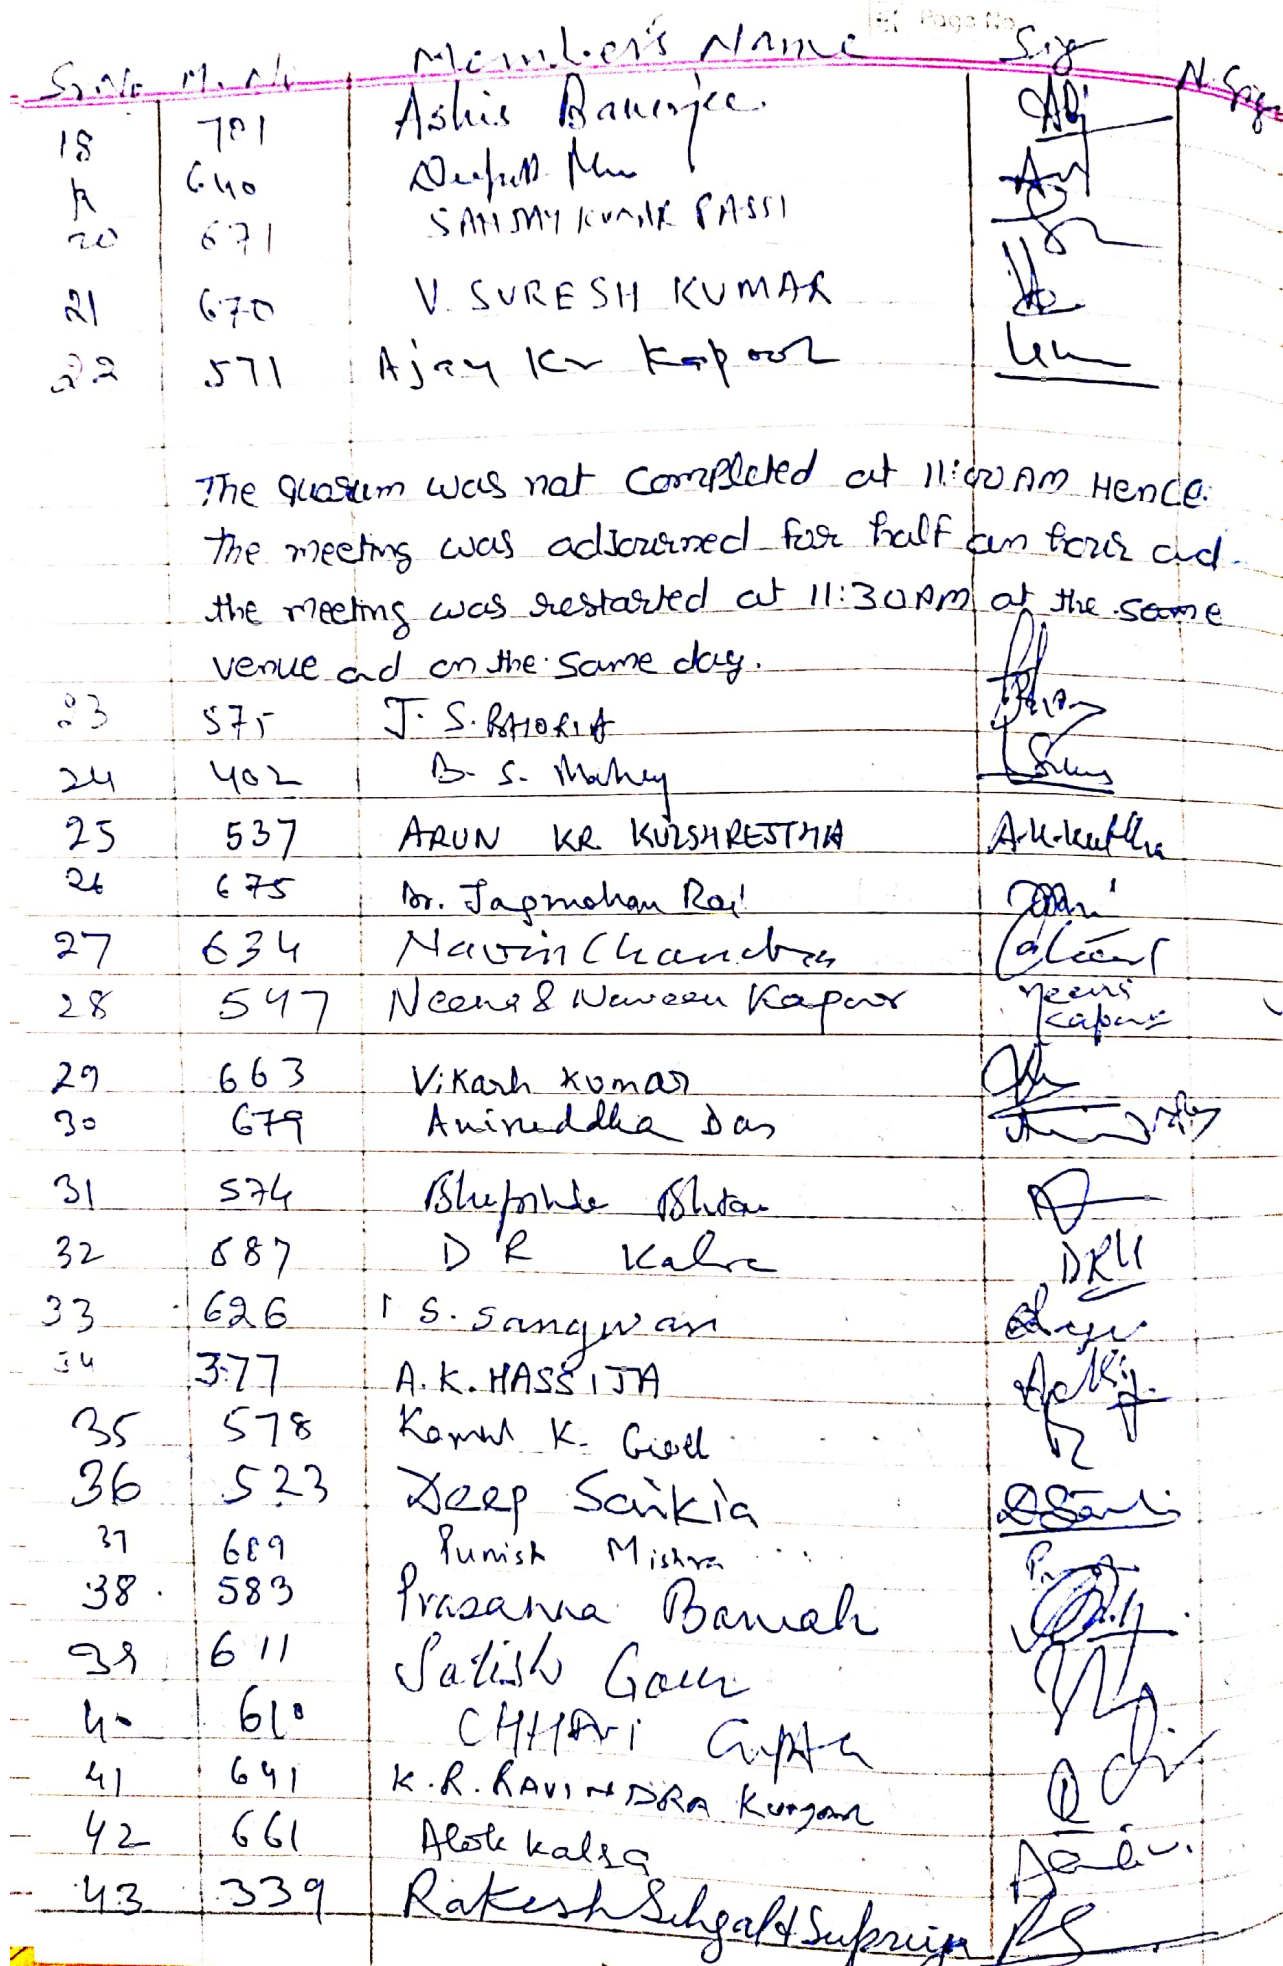 Page No.
Sr.No. M.No. Member's Name Sig N.Sig
18 701 Ashis Banerjee
640
20 671 SANJAY KUMAR PASSI
21 670 V. SURESH KUMAR
22 571 Ajay Kr Kapoor
The quorum was not completed at 11:00 AM Hence
the meeting was adjourned for half an hour ad
the meeting was restarted at 11:30 AM at the same
venue ad on the same day.
23 575 J. S.
24 402 B. S.
25 537 ARUN KR. KULSHRESTHA
26 675 Dr. Jagmohan Rai
27 634 Navin Chandra
28 547 Neena & Naveen Kapoor Neena
Kapoor
29 663 Vikash Kumar
30 679 Aniruddha Das
31 574
32 587 D R Kalra DRK
33 626 S. Sangwan
34 377 A.K. HASSIJA
35 578 Kamal K. Goel
36 523 Deep Saikia
37 689 Punish Mishra
38 583 Prasanna Baruah
39 611 Satish Gaur
40 610 CHHAvi Gupta
41 641 K.R. RAVINDRA Kumar
42 661 Alok Kalra
43 339 Rakesh Sehgal & Supriya